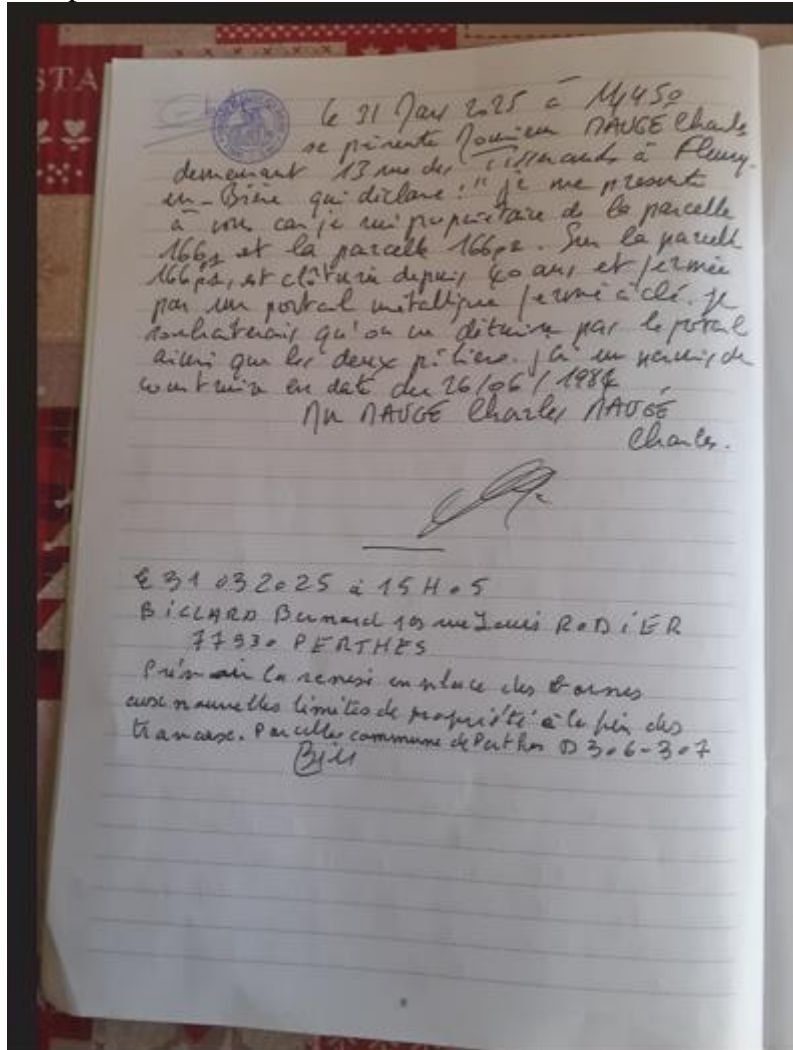 STA
le 31 Mars 2025 à 14h50
se présente Monsieur MAUGÉ Charles
demeurant 13 rue des Tisserands à Fleury-
en-Bière qui déclare : " je me présente
à vous car je suis propriétaire de la parcelle
166p1 et la parcelle 166p2. Sur la parcelle
166p2, est clôturée depuis 40 ans et fermée
par un portail métallique fermé à clé. Je
souhaiterais qu'on ne détruise pas le portail
ainsi que les deux piliers. j'ai un permis de
construire en date du 26/06/1984
Mr MAUGÉ Charles MAUGÉ
Charles.
le 31 03 2025 à 15H05
BILLARD Bernard rue Louis RODIER
77930 PERTHES
Prévoir la remise en place des bornes
aux nouvelles limites de propriété à la fin des
travaux. Parcelles commune de Perthes D 306-307
Bill